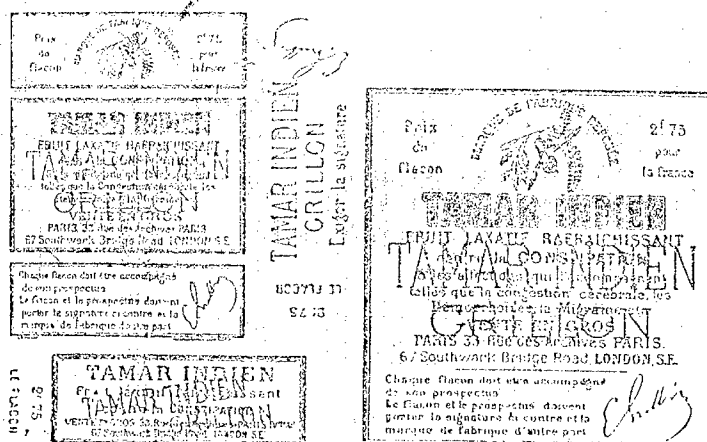 Prix
du
flacon
MARQUE DE FABRIQUE DÉPOSÉE
2f 75
pour
la france
TAMAR INDIEN
FRUIT LAXATIF RAFRAICHISSANT
TAMAR INDIEN
GRILLON
VENTE EN GROS
PARIS, 33 rue des Archives PARIS
67 Southwark Bridge Road LONDON S.E.
Chaque flacon doit être accompagné
de son prospectus
Le flacon et le prospectus doivent
porter la signature ci contre et la
marque de fabrique d'autre part
TAMAR INDIEN
GRILLON
Exiger la signature
LE FLACON
2f 75
TAMAR INDIEN
TAMAR INDIEN
CONSTIPATION
VENTE EN GROS 33 Rue des Archives PARIS
67 Southwark Bridge Road LONDON SE
LE FLACON
2f 75
Prix
du
flacon
MARQUE DE FABRIQUE DÉPOSÉE
2f 75
pour
la france
TAMAR INDIEN
FRUIT LAXATIF RAFRAICHISSANT
contre la CONSTIPATION
TAMAR INDIEN
et les affections qui l'accompagnent
telles que la congestion cérébrale, les
Hémorrhoïdes, la Migraine, etc
GRILLON
VENTE EN GROS
PARIS 33 Rue des Archives PARIS.
67 Southwark Bridge Road, LONDON, S.E.
Chaque flacon doit être accompagné
de son prospectus
Le flacon et le prospectus doivent
porter la signature ci contre et la
marque de fabrique d'autre part